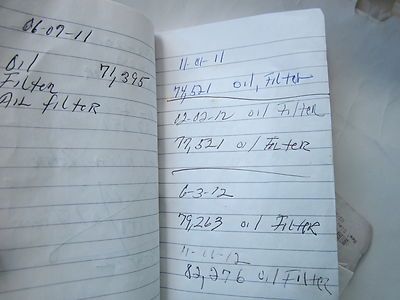 06-07-11
Oil 71,395
Filter
Air filter
11-01-11
74,521 oil, Filter
02-02-12 oil Filter
77,521 oil Filter
6-3-12
79,263 oil Filter
11-16-12
82,276 oil Filter